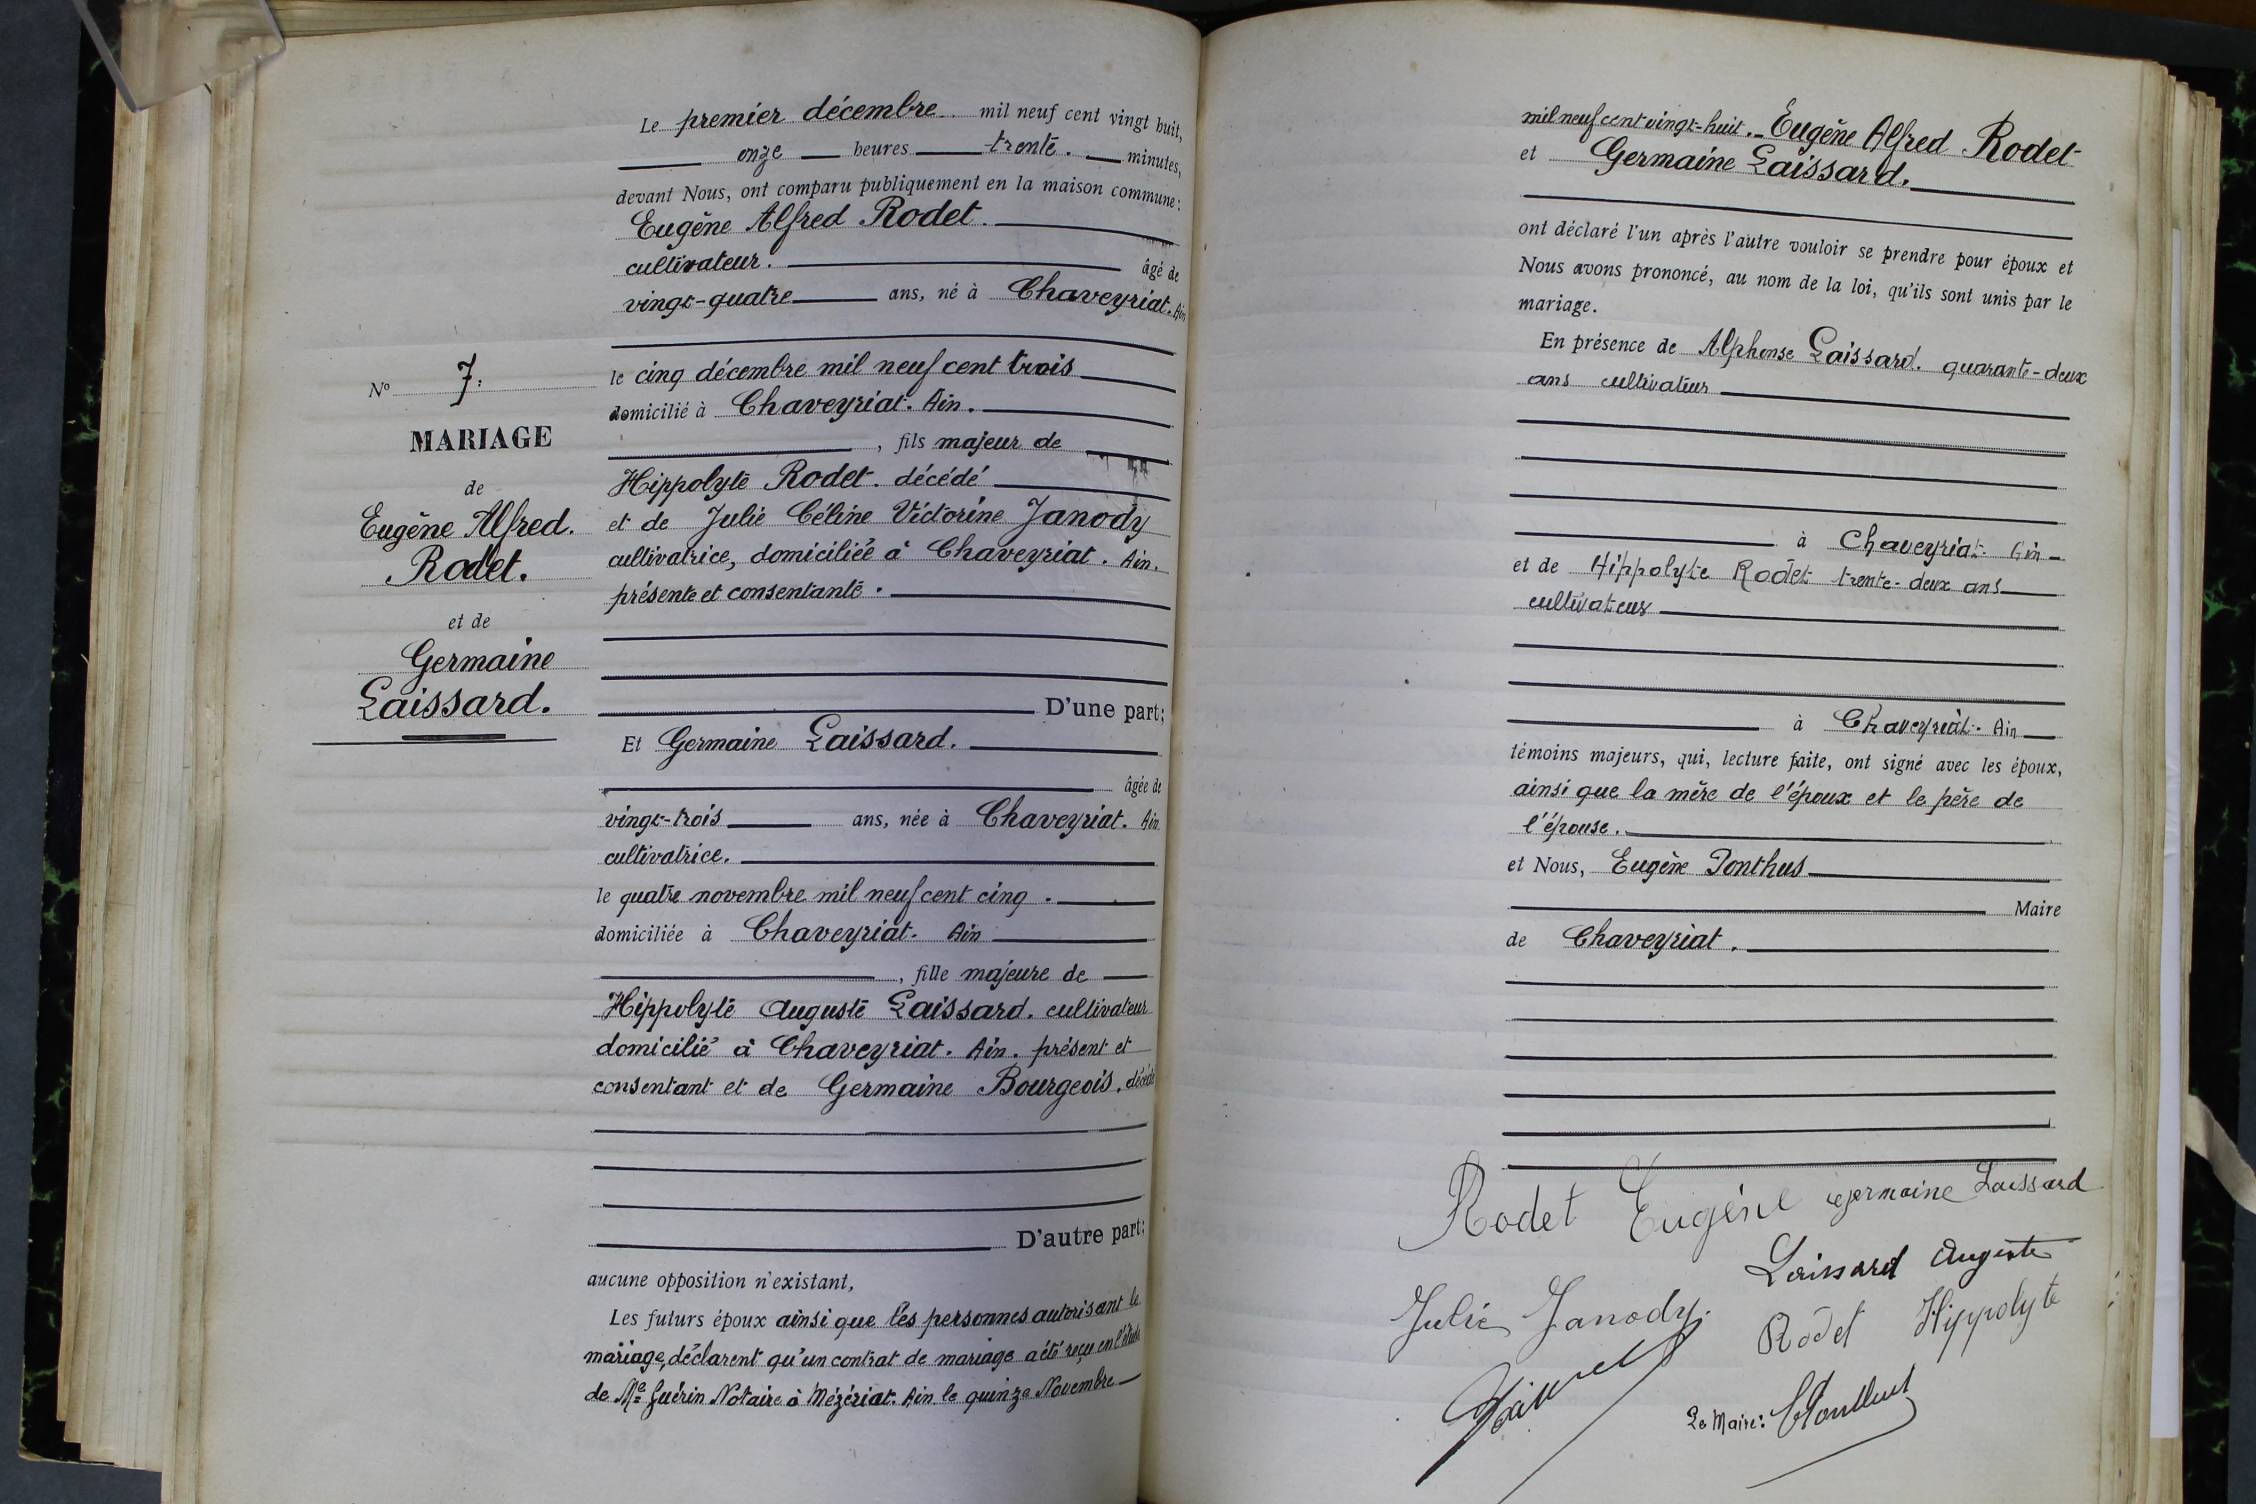 N° 7.
MARIAGE
de
Eugène Alfred.
Rodet.
et de
Germaine
Laissard.
Le premier décembre mil neuf cent vingt huit,
onze heures trente. minutes,
devant Nous, ont comparu publiquement en la maison commune:
Eugène Alfred Rodet.
cultivateur. âgé de
vingt-quatre ans, né à Chaveyriat. Ain
le cinq décembre mil neuf cent trois
domicilié à Chaveyriat. Ain.
, fils majeur de
Hippolyte Rodet. décédé
et de Julie Céline Victorine Janody
cultivatrice, domiciliée à Chaveyriat. Ain.
présente et consentante.
D'une part;
Et Germaine Laissard.
âgée de
vingt-trois ans, née à Chaveyriat. Ain
cultivatrice.
le quatre novembre mil neuf cent cinq.
domiciliée à Chaveyriat. Ain
, fille majeure de
Hippolyte Auguste Laissard. cultivateur
domicilié à Chaveyriat. Ain. présent et
consentant et de Germaine Bourgeois. décédé
D'autre part;
aucune opposition n'existant,
Les futurs époux ainsi que les personnes autorisant le
mariage, déclarent qu'un contrat de mariage a été reçu en l'étude
de Me Guérin Notaire à Mézériat. Ain le quinze Novembre
mil neuf cent vingt-huit. Eugène Alfred Rodet
et Germaine Laissard.
ont déclaré l'un après l'autre vouloir se prendre pour époux et
Nous avons prononcé, au nom de la loi, qu'ils sont unis par le
mariage.
En présence de Alphonse Laissard. quarante-deux
ans cultivateur
à Chaveyriat. Ain
et de Hippolyte Rodet trente-deux ans
cultivateur
à Chaveyriat. Ain
témoins majeurs, qui, lecture faite, ont signé avec les époux,
ainsi que la mère de l'époux et le père de
l'épouse.
et Nous, Eugène Ponthus
Maire
de Chaveyriat.
Rodet Eugène Germaine Laissard
Laissard Auguste
Julie Janody. Rodet Hippolyte
Le Maire: